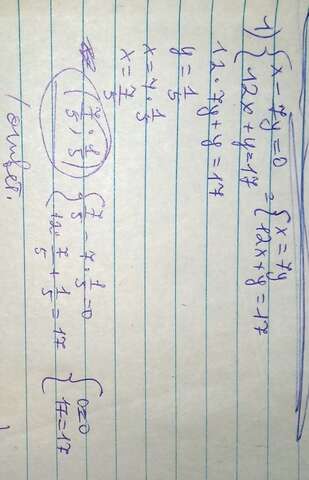 1) { x - 7y = 0 = { x = 7y
{ 12x + y = 17 { 12x + y = 17
12 · 7y + y = 17
y = 1/5
x = 7 · 1/5
x = 7/5
(7/5 ; 1/5) { 7/5 - 7 · 1/5 = 0 { 0 = 0
{ 12 · 7/5 + 1/5 = 17 { 17 = 17
/ ответ.